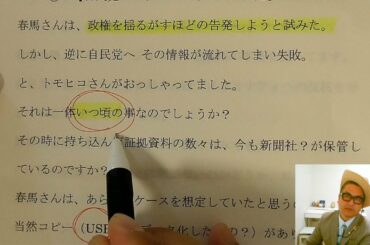 春馬さんは、政権を揺るがすほどの告発しようと試みた。
しかし、逆に自民党へ その情報が流れてしまい失敗。
と、トモヒコさんがおっしゃってました。
それは一体いつ頃の事なのでしょうか?
その時に持ち込ん 証拠資料の数々は、今も新聞社?が保管し
ているのですか?
春馬さんは、あら ケースを想定していたと思う
当然コピー(USB データ化した の?)があり